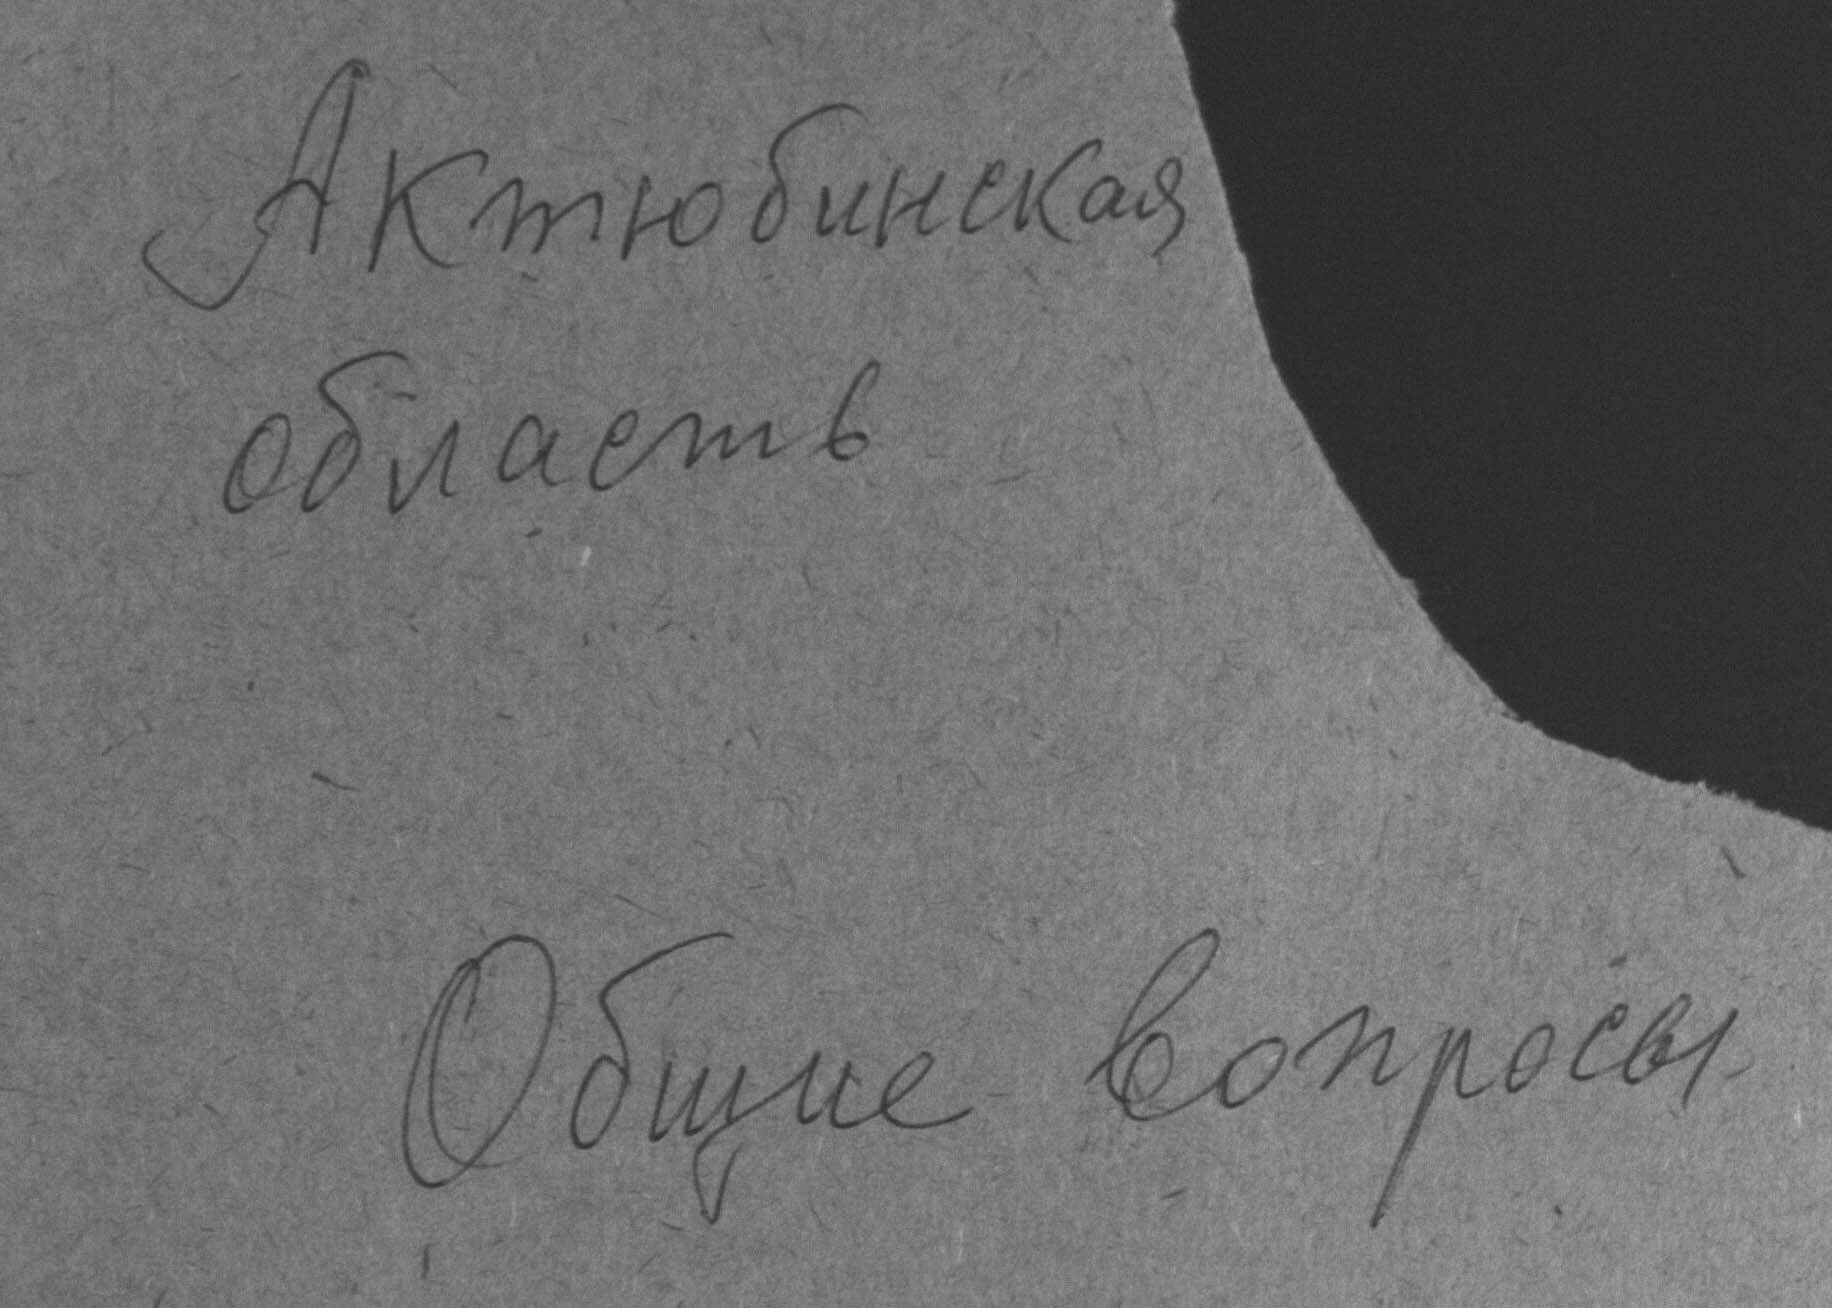 Актюбинская
область
Общие вопросы